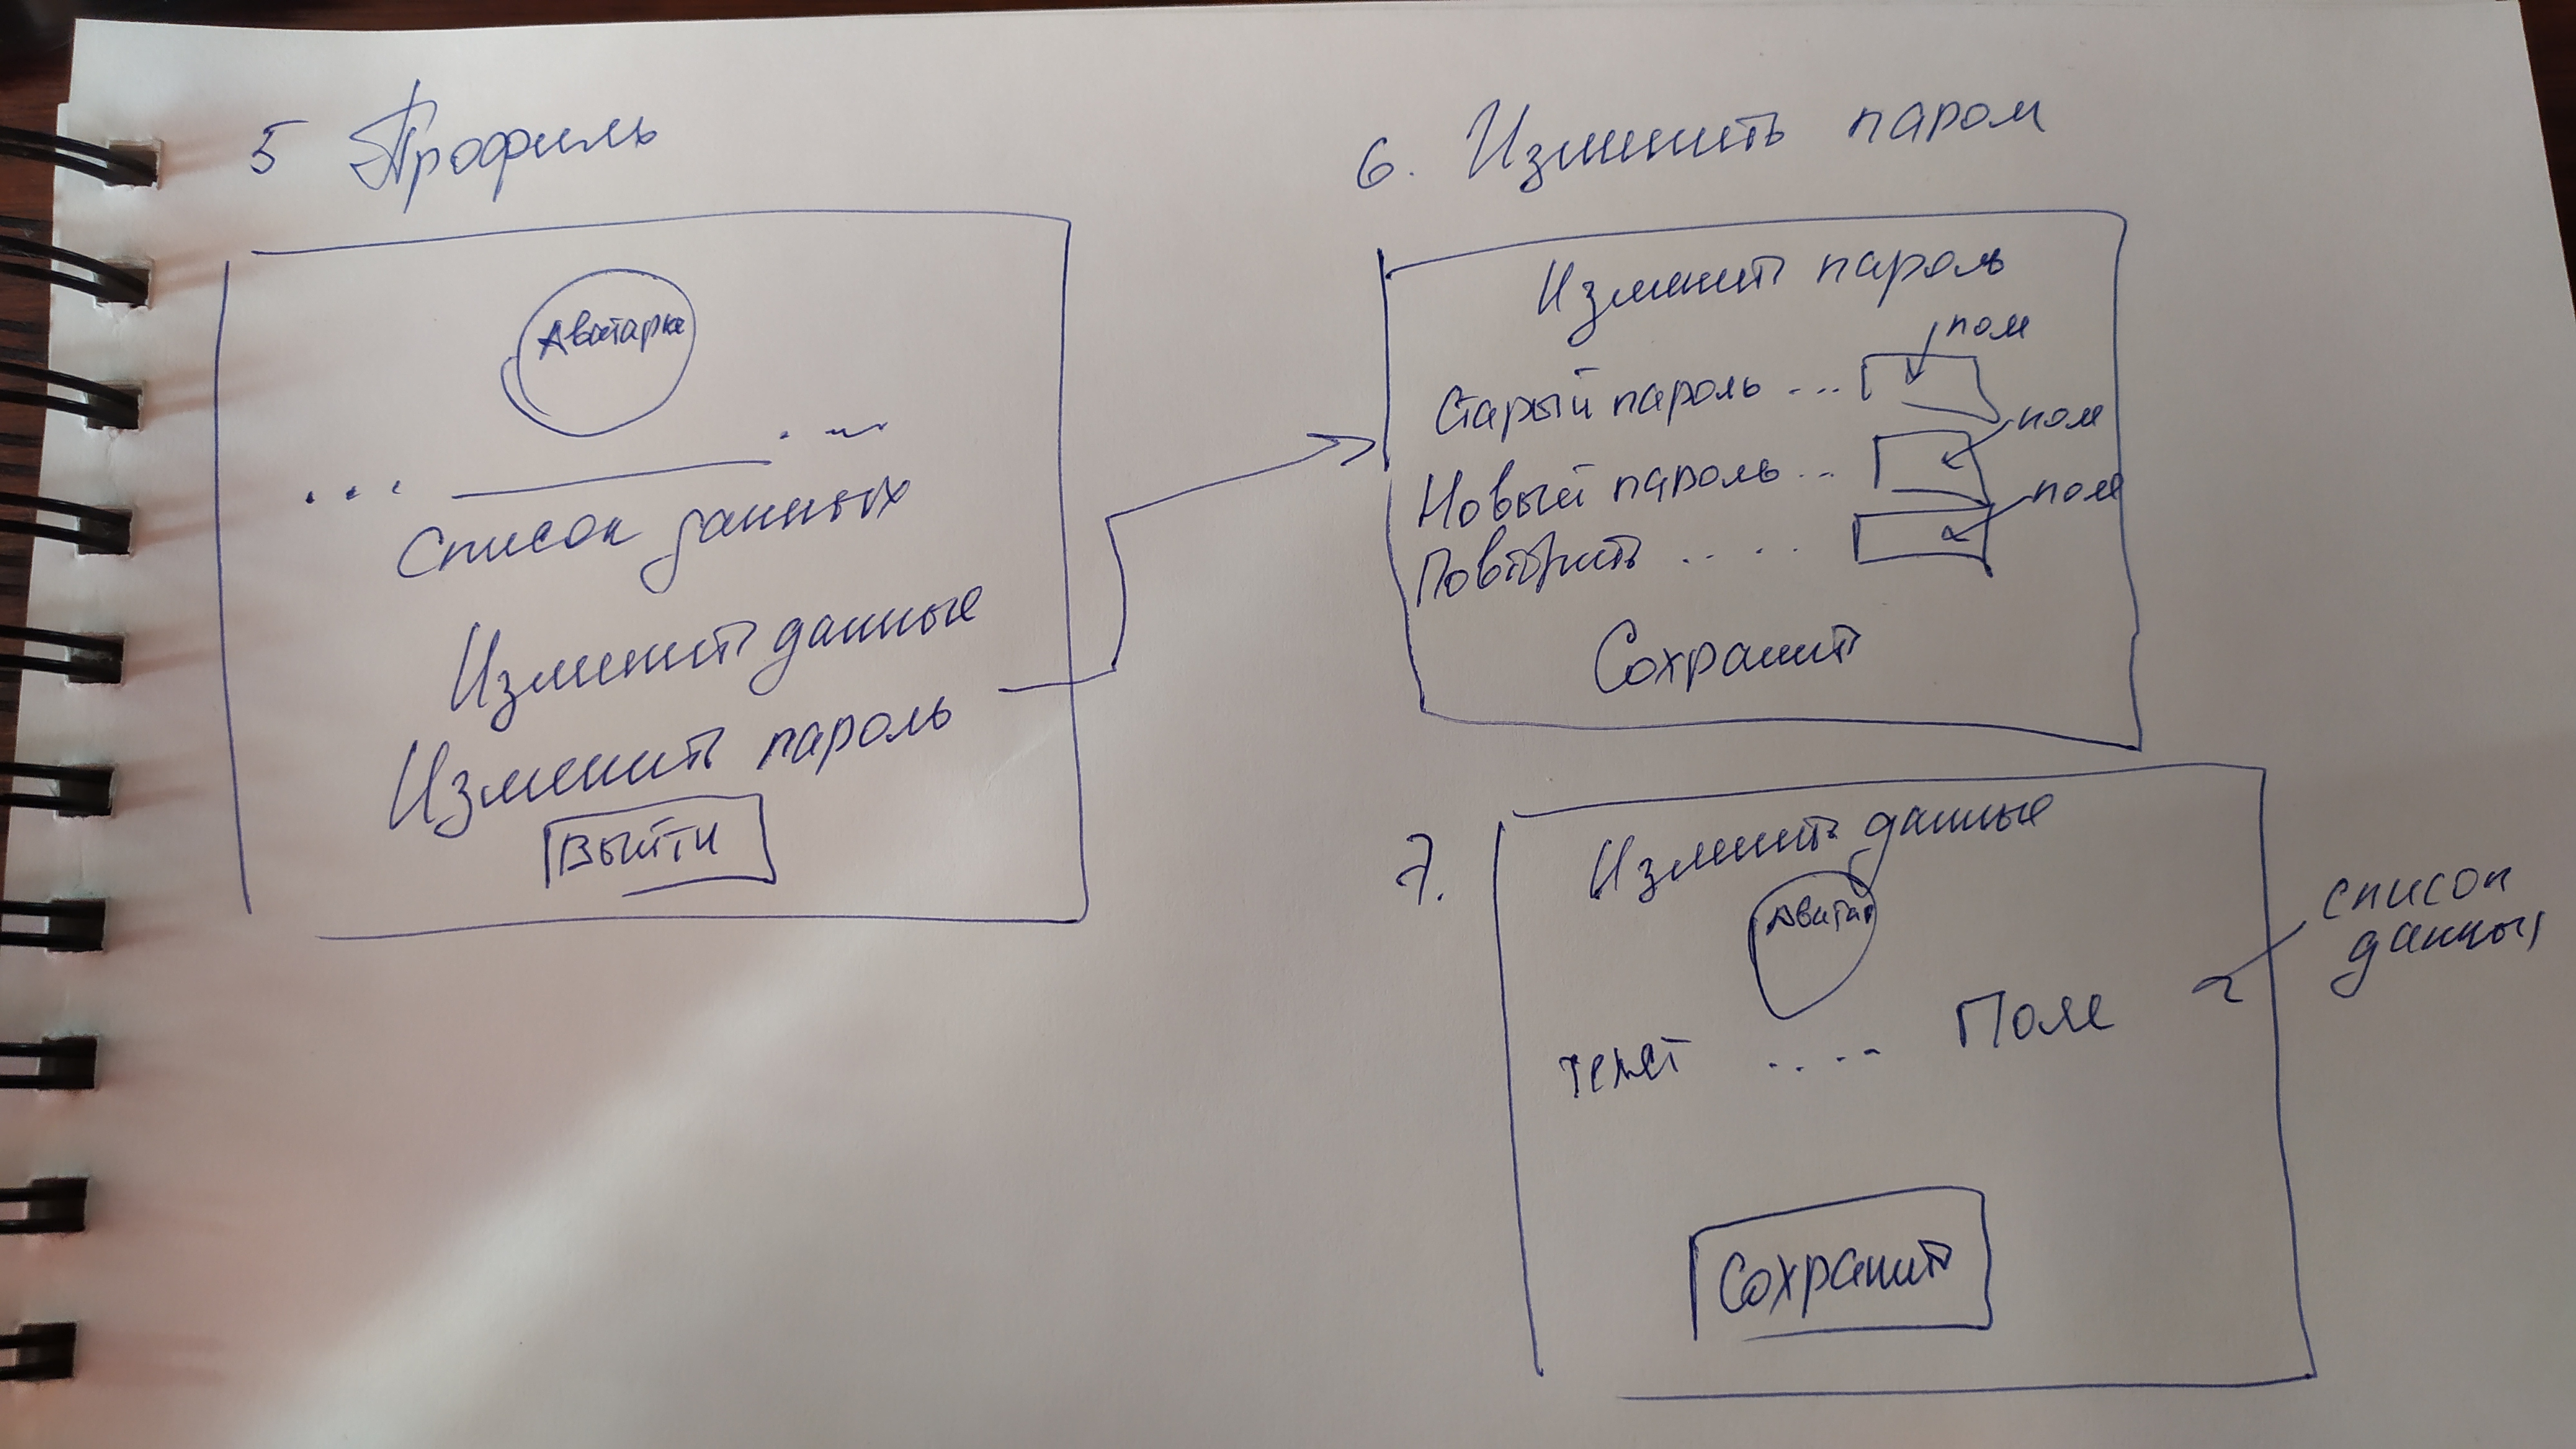 5 Профиль
Аватарка
... ...
Список данных
Изменить данные
Изменить пароль
Выйти
6. Изменить пароль
Изменить пароль
поле
Старый пароль ...
поле
Новый пароль ...
поле
Повторить ....
Сохранить
7.
Изменить данные
Аватар
список
данных
текст .... Поле
Сохранить